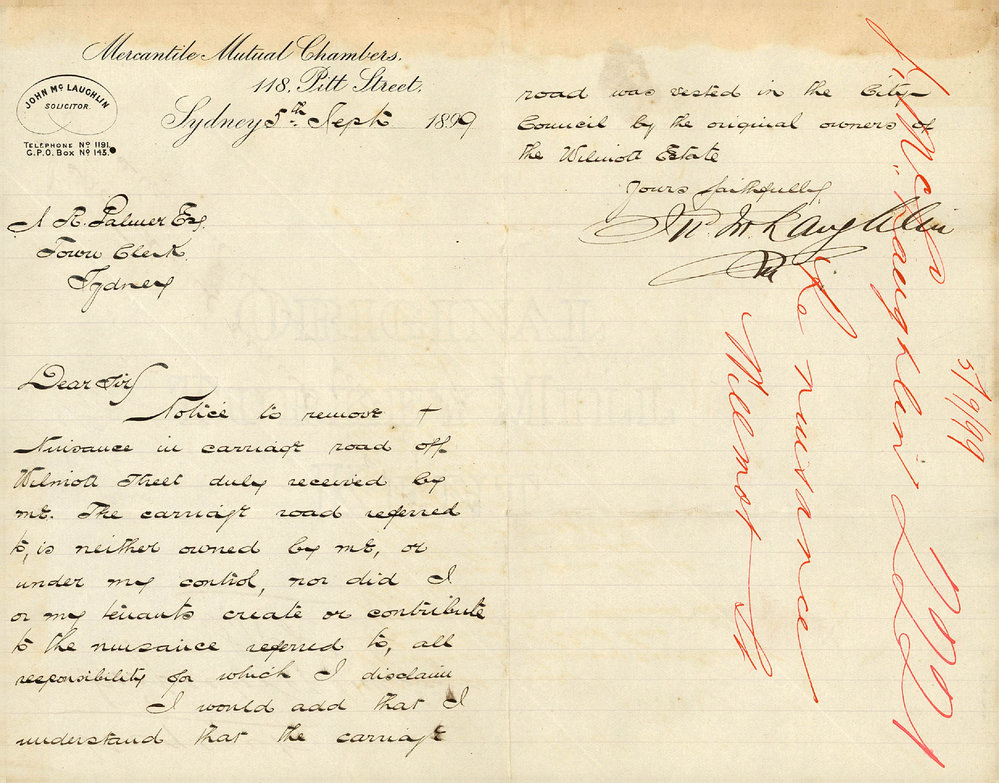 Mercantile Mutual Chambers.
118. Pitt Street.
JOHN McLAUGHLIN
SOLICITOR.
TELEPHONE No 1191.
G.P.O. BOX No 143.
Sydney 5th Sept 1899
Palmer Esq
Town Clerk
Sydney
Dear Sir
Notice to remove
Nuisance in carriage road off
Wilmott Street duly received by
me. The carriage road referred
to, is neither owned by me, or
under my control, nor did I
or my tenants create or contribute
to the nuisance referred to, all
responsibility for which I disclaim
I would add that I
understand that the carriage
road was vested in the City
Council by the original owners of
the Wilmott Estate
Yours faithfully
McLaughlin
McLaughlin
re nuisance
Willmot St
5/9/99